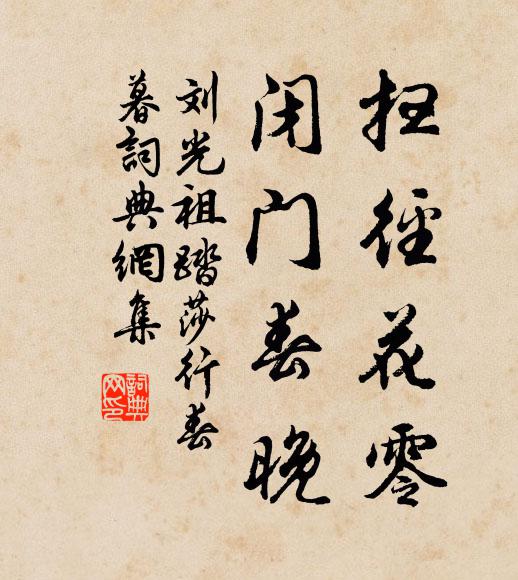 扫径花零
闭门春晚
刘光祖踏莎行春
暮詞典網集
詞典網印